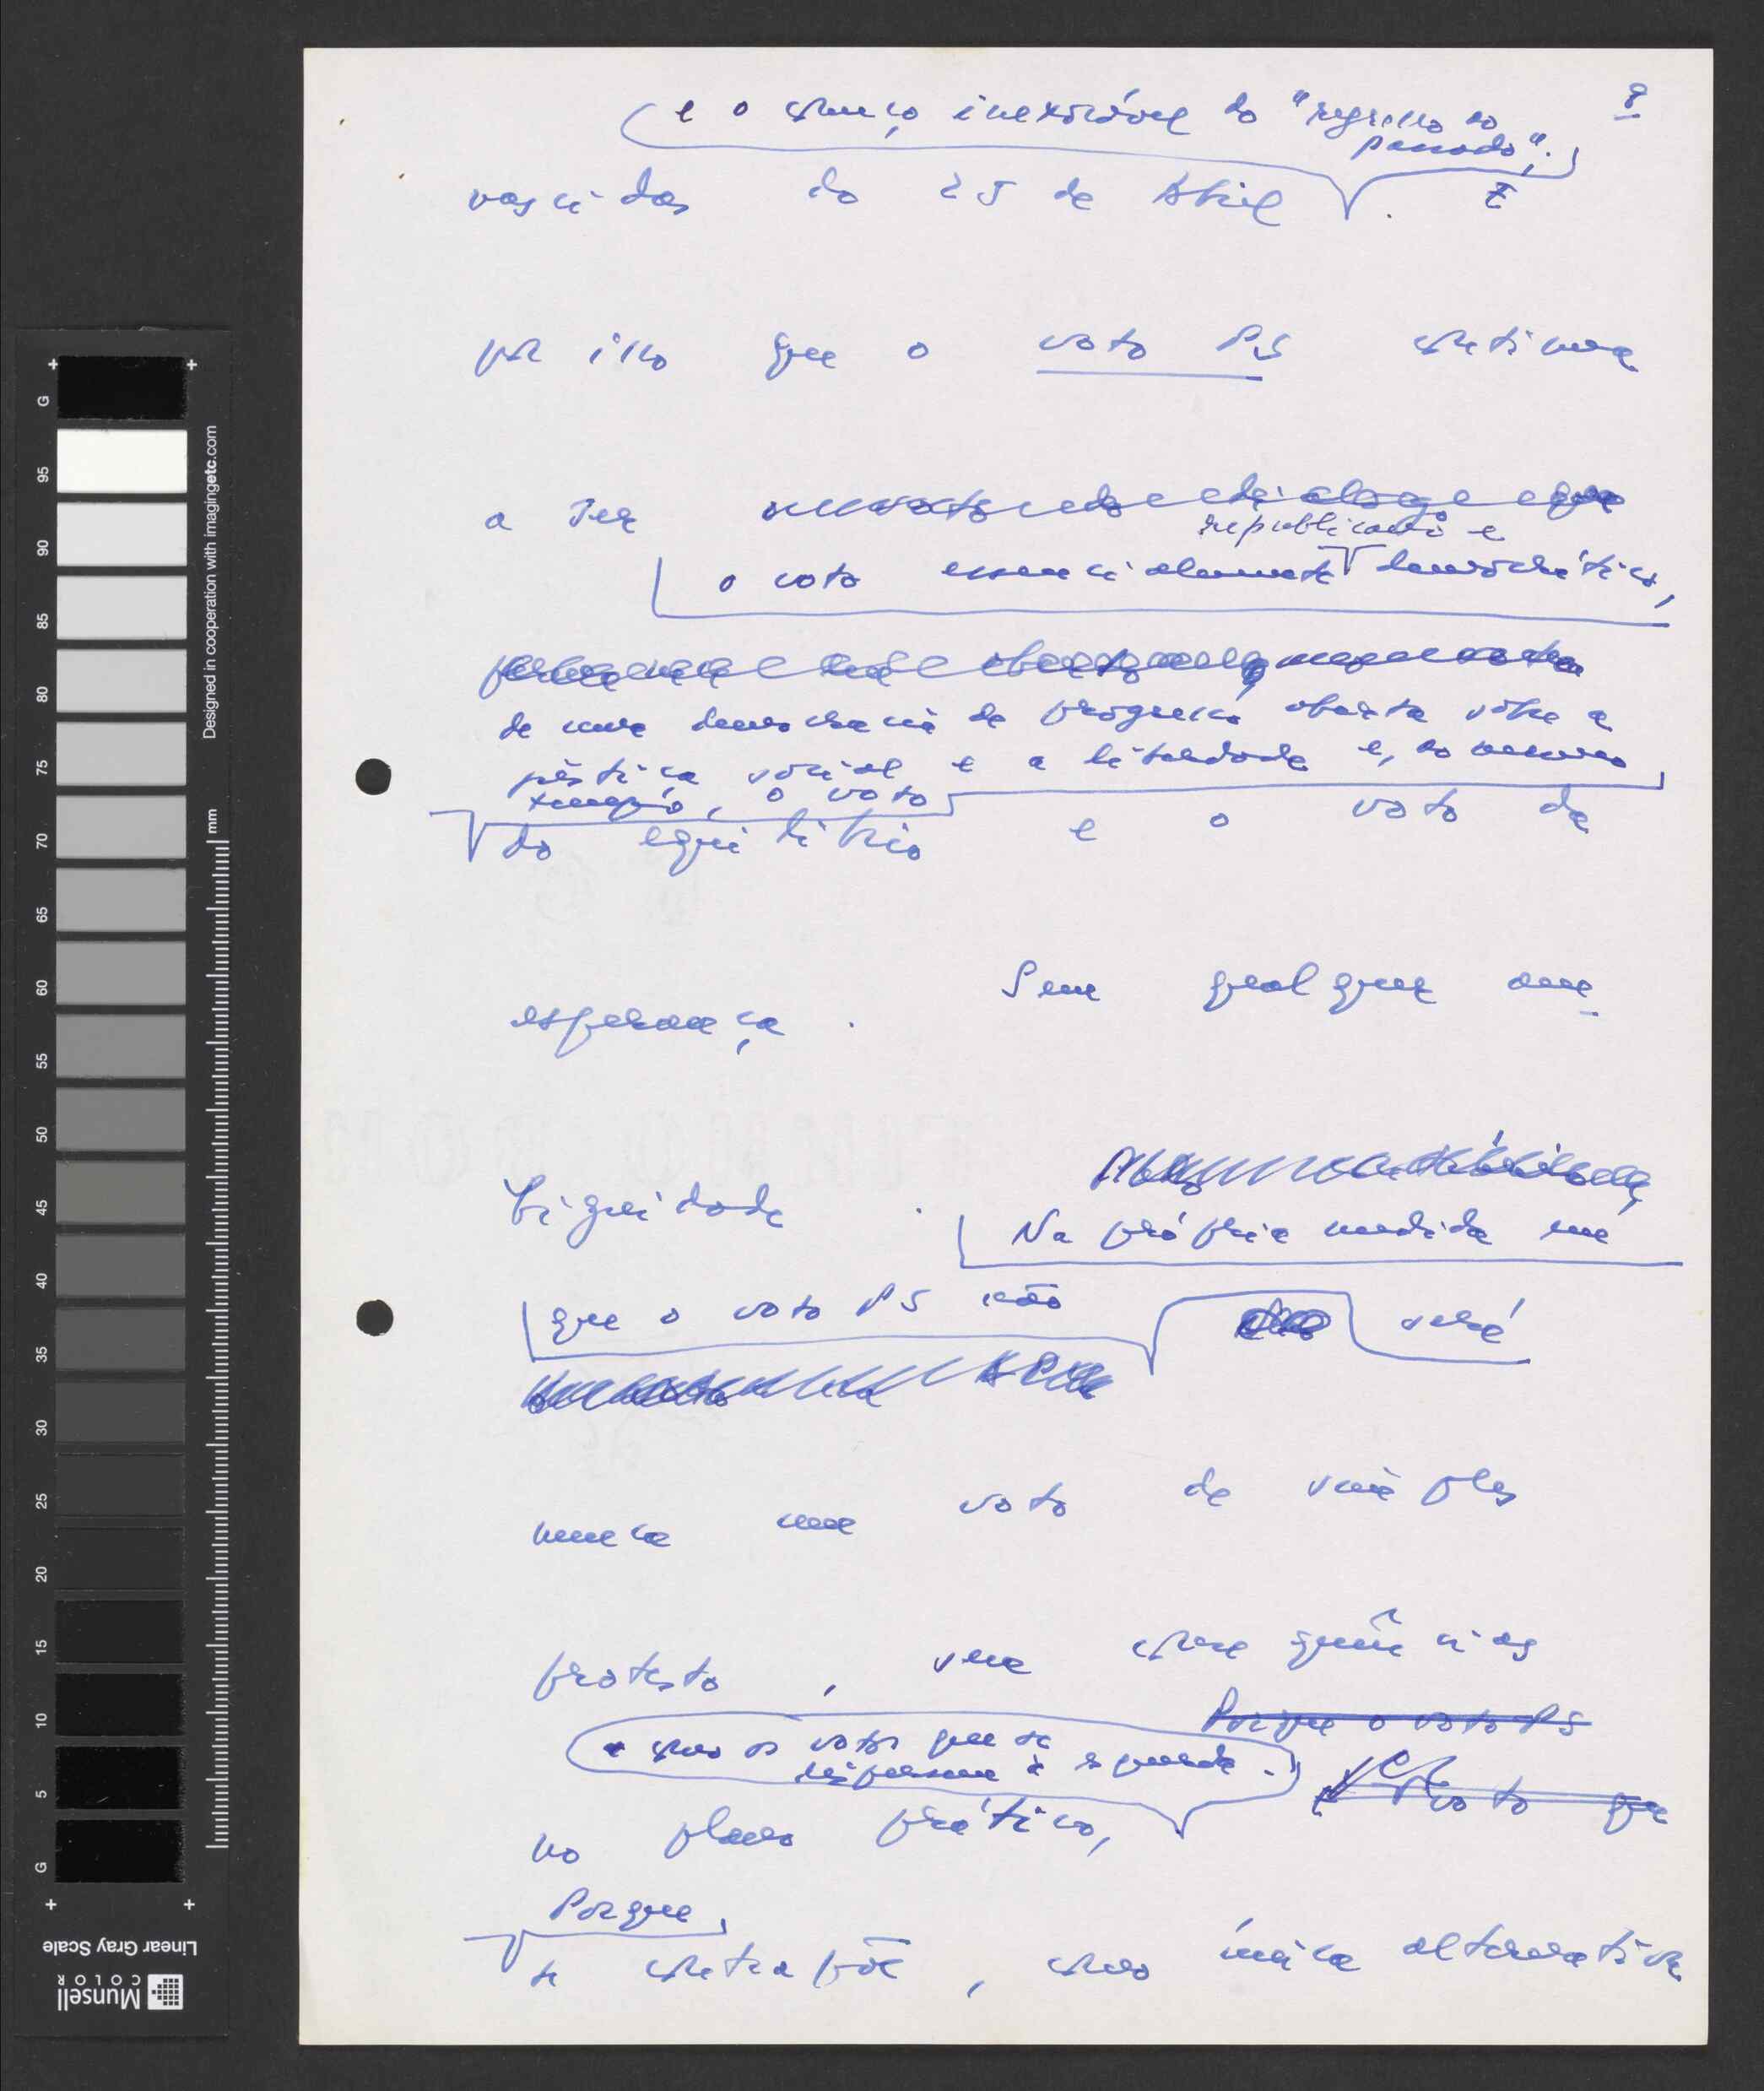 8
(e o começo inexorável do "regresso ao
passado",.)
nascidas do 25 de Abril . E
por isso que o voto PS continua
a ser
republicano e
o voto essencialmente democrático,
de uma democracia de progresso aberta sobre a
justiça social e a liberdade e, ao mesmo
tempo, o voto
do equilíbrio e o voto da
esperança . Sem qualquer am-
biguidade .
Na própria medida em
que o voto PS não será
nunca um voto de simples
protesto , sem consequências
Porque o voto PS
como os votos que se
dispersam à esquerda.
voto que
no plano prático,
Porque,
se contrapõe , como única alternativa
G
95
90
85
80
75
70
65
60
55
50
45
40
35
30
25
20
15
10
5
G
Designed in cooperation with imagingetc.com
mm
Linear Gray Scale
Munsell
COLOR